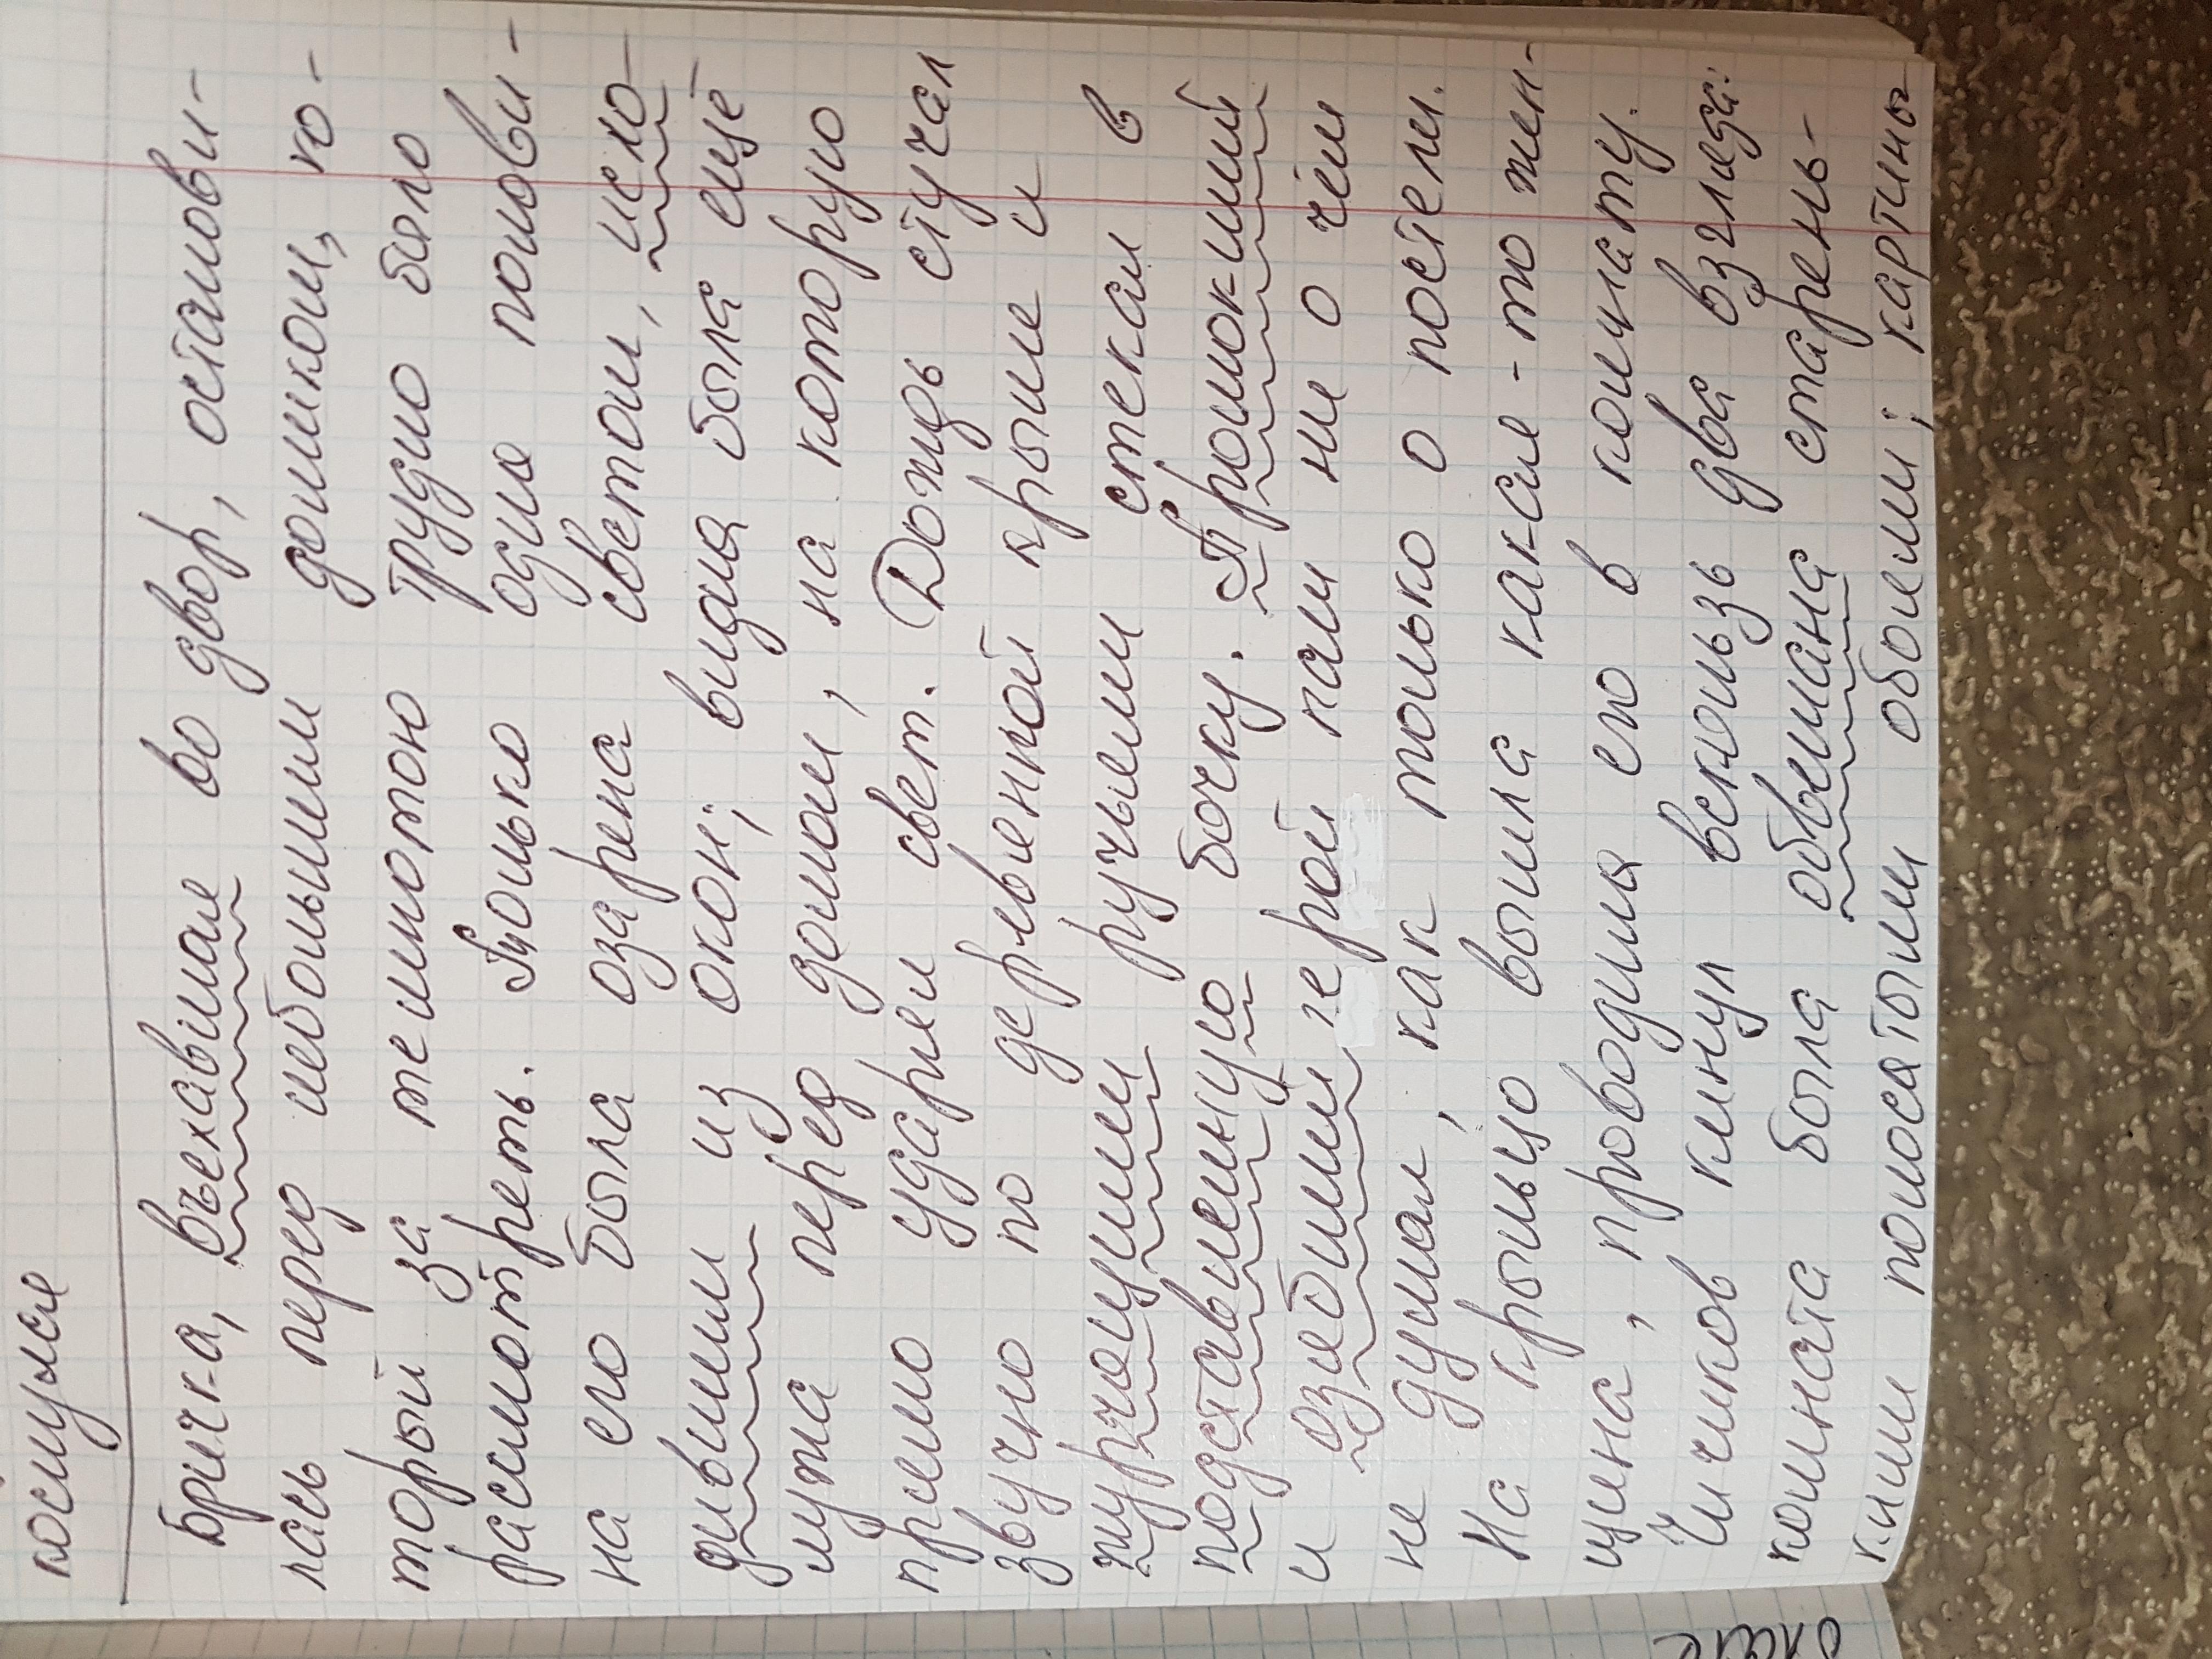 коснулся
Бричка, въехавшая во двор, останови-
лась перед небольшим домиком, ко-
торый за темнотою трудно было
рассмотреть. Только одна полови-
на его была озарена светом, исхо-
дившим из окон; видна была ещё
лужа перед домом, на которую
прямо ударял свет. Дождь стучал
звучно по деревянной крыше и
журчащими ручьями стекал в
подставленную бочку. Промокший
и озябший герой наш ни о чём
не думал, как только о постели.
На крыльцо вышла какая-то жен-
щина, проводила его в комнату.
Чичиков кинул вскользь два взгляда:
комната была обвешана старень-
кими полосатыми обоями; картины